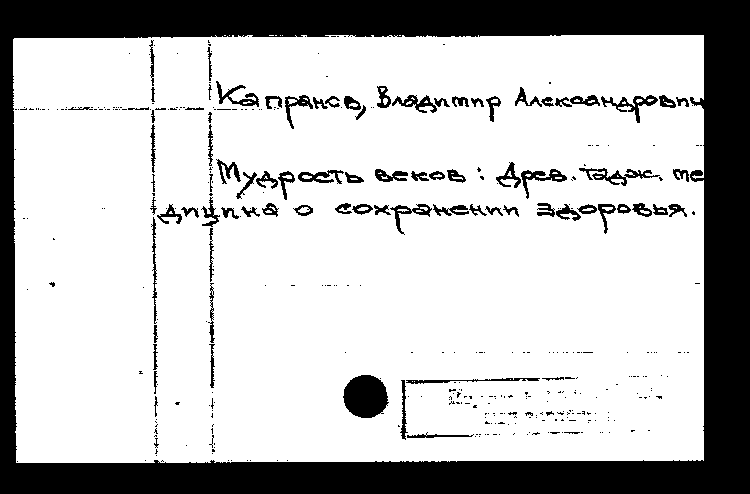 Капранов, Владимир Александрович
Мудрость веков : Древ. тадж. ме
дицина о сохранении здоровья.